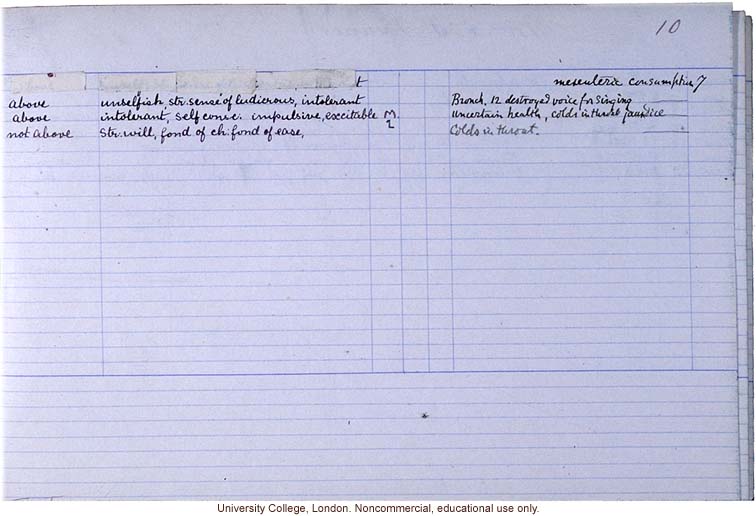 10
t mesenteric consumption 7
above unselfish, str. sense of ludicrous, intolerant Bronch. 12 destroyed voice for singing
above intolerant, self consc. impulsive, excitable M 2 uncertain health, colds in throat jaundice
not above str. will, fond of ch: fond of ease, Colds in throat.
University College, London. Noncommercial, educational use only.